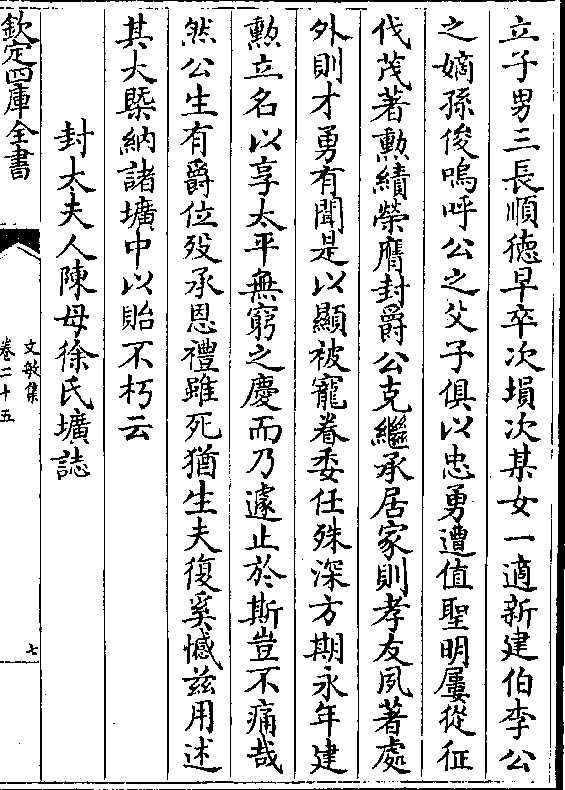 立子男三長順徳早卒次塤次某女一適新建伯李公
之嫡孫俊嗚呼公之父子俱以忠勇遭值聖明屢從征
伐茂著勲績榮膺封爵公克繼承居家則孝友夙著處
外則才勇有聞是以顯被寵眷委任殊深方期永年建
勲立名以享太平無窮之慶而乃遽止於斯豈不痛哉
然公生有爵位歿承恩禮雖死猶生夫復奚憾兹用述
其大槩納諸壙中以貽不朽云
封太夫人陳母徐氏壙誌
欽定四庫全書
文敏集
卷二十五
七